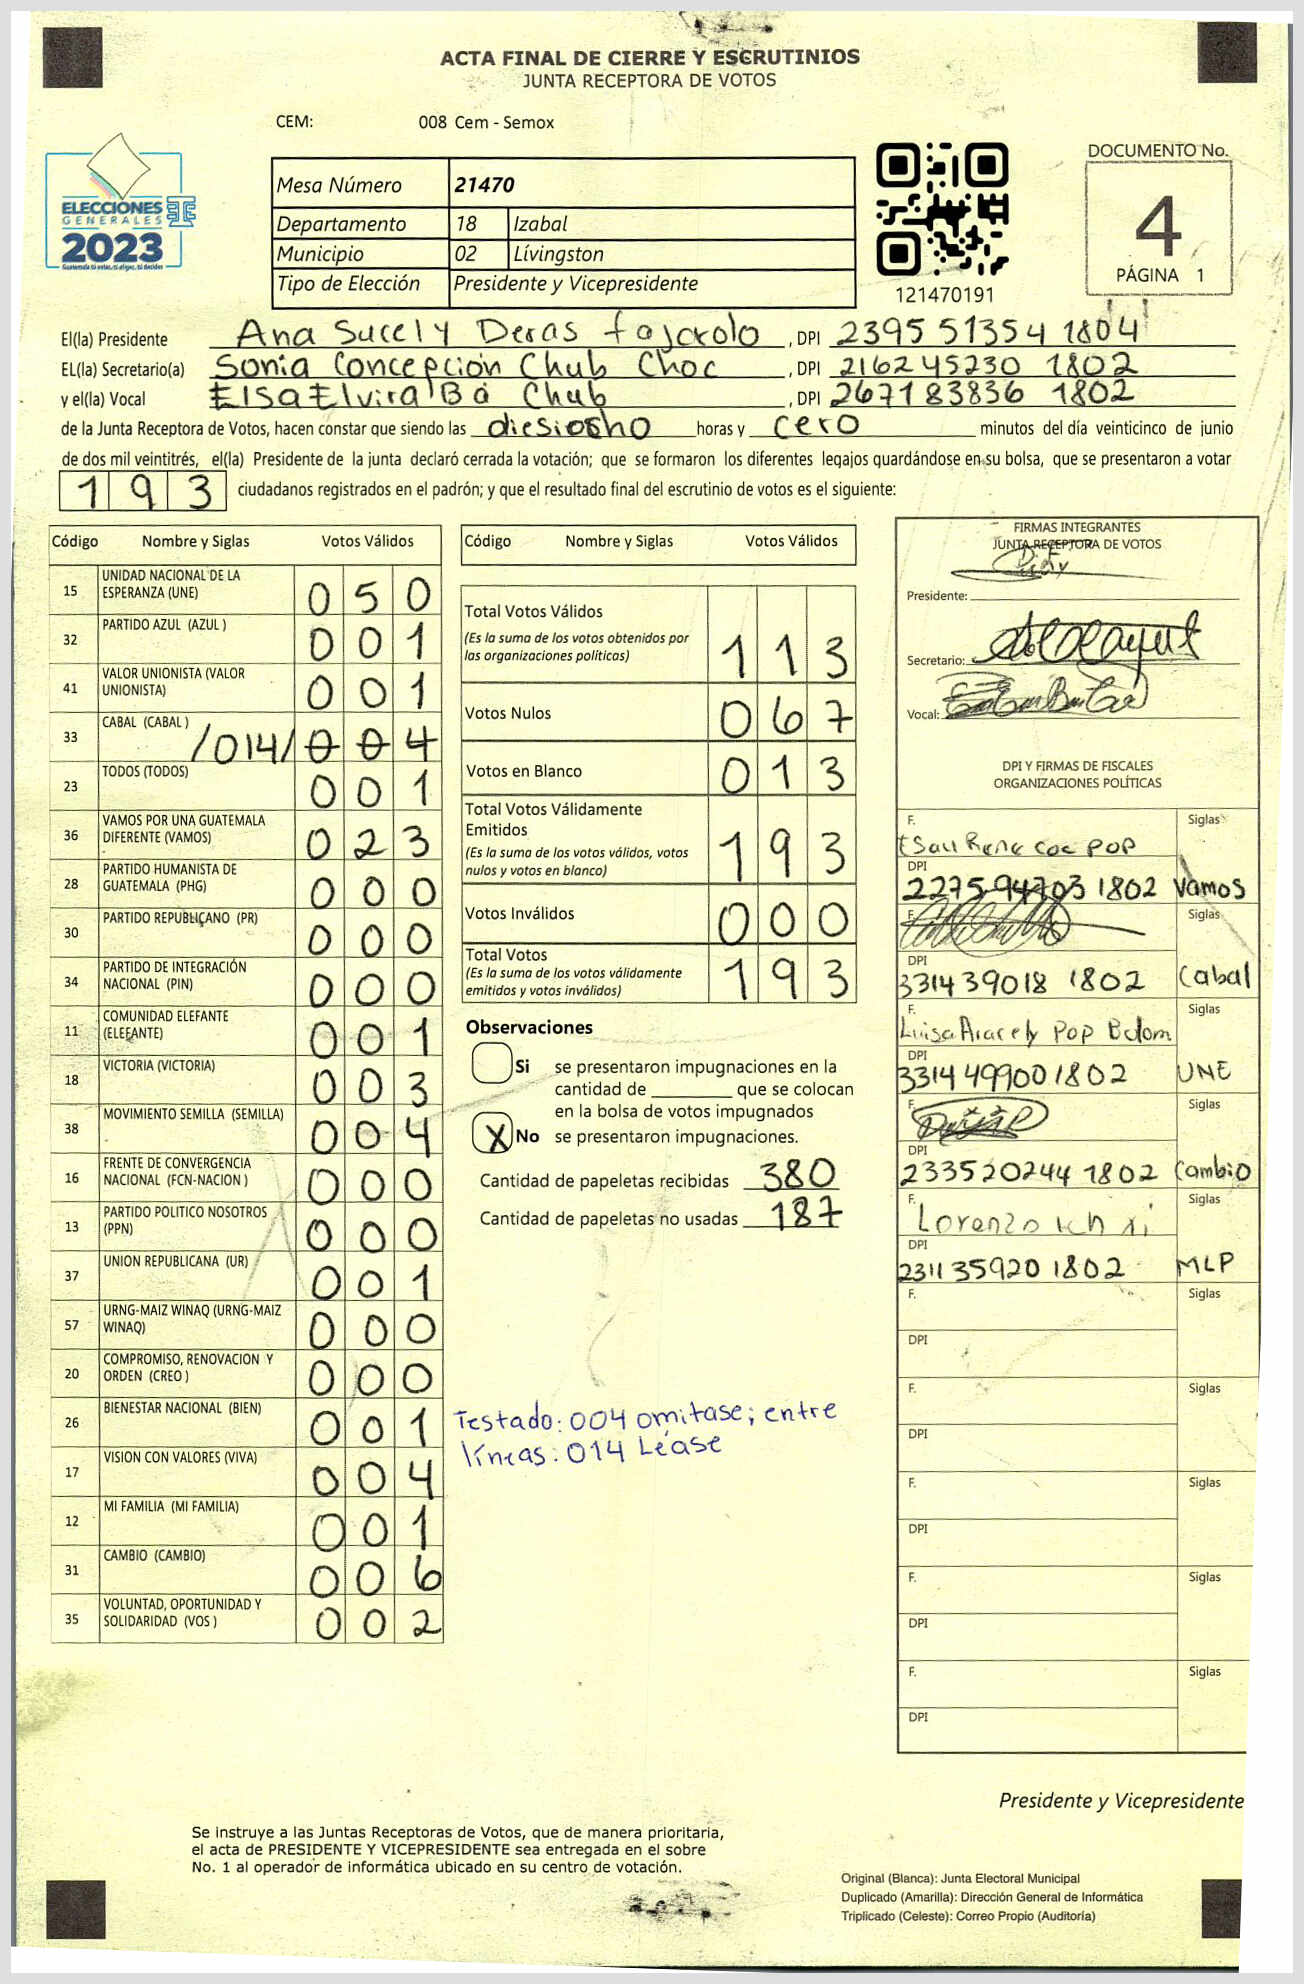 ACTA FINAL DE CIERRE Y ESCRUTINIOS
JUNTA RECEPTORA DE VOTOS
CEM: 008 Cem - Semox
ELECCIONES
GENERALES
2023
Guatemala tú votas, tú eliges, tú decides
Mesa Número 21470
Departamento 18 Izabal
Municipio 02 Lívingston
Tipo de Elección Presidente y Vicepresidente
121470191
DOCUMENTO No.
4
PÁGINA 1
El(la) Presidente Ana Sucely Deras fajardo, DPI 2395 51354 1804
EL(la) Secretario(a) Sonia Concepción Chub Choc, DPI 2162 45230 1802
y el(la) Vocal Elsa Elvira Ba Chub, DPI 2671 83836 1802
de la Junta Receptora de Votos, hacen constar que siendo las diesiosho horas y cero minutos del día veinticinco de junio
de dos mil veintitrés, el(la) Presidente de la junta declaró cerrada la votación; que se formaron los diferentes legajos guardándose en su bolsa, que se presentaron a votar
193 ciudadanos registrados en el padrón; y que el resultado final del escrutinio de votos es el siguiente:
Código Nombre y Siglas Votos Válidos
15 UNIDAD NACIONAL DE LA ESPERANZA (UNE) 050
32 PARTIDO AZUL (AZUL ) 001
41 VALOR UNIONISTA (VALOR UNIONISTA) 001
33 CABAL (CABAL ) /014/ 004
23 TODOS (TODOS) 001
36 VAMOS POR UNA GUATEMALA DIFERENTE (VAMOS) 023
28 PARTIDO HUMANISTA DE GUATEMALA (PHG) 000
30 PARTIDO REPUBLICANO (PR) 000
34 PARTIDO DE INTEGRACIÓN NACIONAL (PIN) 000
11 COMUNIDAD ELEFANTE (ELEFANTE) 001
18 VICTORIA (VICTORIA) 003
38 MOVIMIENTO SEMILLA (SEMILLA) 004
16 FRENTE DE CONVERGENCIA NACIONAL (FCN-NACION ) 000
13 PARTIDO POLITICO NOSOTROS (PPN) 000
37 UNION REPUBLICANA (UR) 001
57 URNG-MAIZ WINAQ (URNG-MAIZ WINAQ) 000
20 COMPROMISO, RENOVACION Y ORDEN (CREO ) 000
26 BIENESTAR NACIONAL (BIEN) 001
17 VISION CON VALORES (VIVA) 004
12 MI FAMILIA (MI FAMILIA) 001
31 CAMBIO (CAMBIO) 006
35 VOLUNTAD, OPORTUNIDAD Y SOLIDARIDAD (VOS ) 002
Código Nombre y Siglas Votos Válidos
Total Votos Válidos 113
(Es la suma de los votos obtenidos por
las organizaciones políticas)
Votos Nulos 067
Votos en Blanco 013
Total Votos Válidamente
Emitidos 193
(Es la suma de los votos válidos, votos
nulos y votos en blanco)
Votos Inválidos 000
Total Votos 193
(Es la suma de los votos válidamente
emitidos y votos inválidos)
Observaciones
Si se presentaron impugnaciones en la
cantidad de ________ que se colocan
en la bolsa de votos impugnados
X No se presentaron impugnaciones.
Cantidad de papeletas recibidas 380
Cantidad de papeletas no usadas 187
Testado: 004 omitase; entre
líneas: 014 Léase
FIRMAS INTEGRANTES
JUNTA RECEPTORA DE VOTOS
Presidente:
Secretario:
Vocal:
DPI Y FIRMAS DE FISCALES
ORGANIZACIONES POLÍTICAS
F. Siglas
Esau Rene Coc POP
DPI
2275 94703 1802 Vamos
F. Siglas
DPI
3314 39018 1802 Cabal
F. Siglas
Luisa Aracely Pop Botom
DPI
3314 49900 1802 UNE
F. Siglas
DPI
2335 20244 1802 Cambio
F. Siglas
Lorenzo Ich xi
DPI
2311 35920 1802 MLP
F. Siglas
DPI
F. Siglas
DPI
F. Siglas
DPI
F. Siglas
DPI
F. Siglas
DPI
Presidente y Vicepresidente
Se instruye a las Juntas Receptoras de Votos, que de manera prioritaria,
el acta de PRESIDENTE Y VICEPRESIDENTE sea entregada en el sobre
No. 1 al operador de informática ubicado en su centro de votación.
Original (Blanca): Junta Electoral Municipal
Duplicado (Amarilla): Dirección General de Informática
Triplicado (Celeste): Correo Propio (Auditoría)